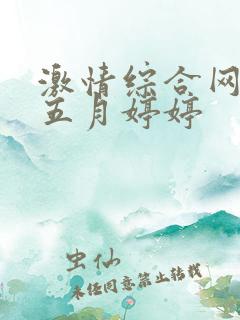 激情综合网
五月婷婷
虫仙
未经同意禁止转载